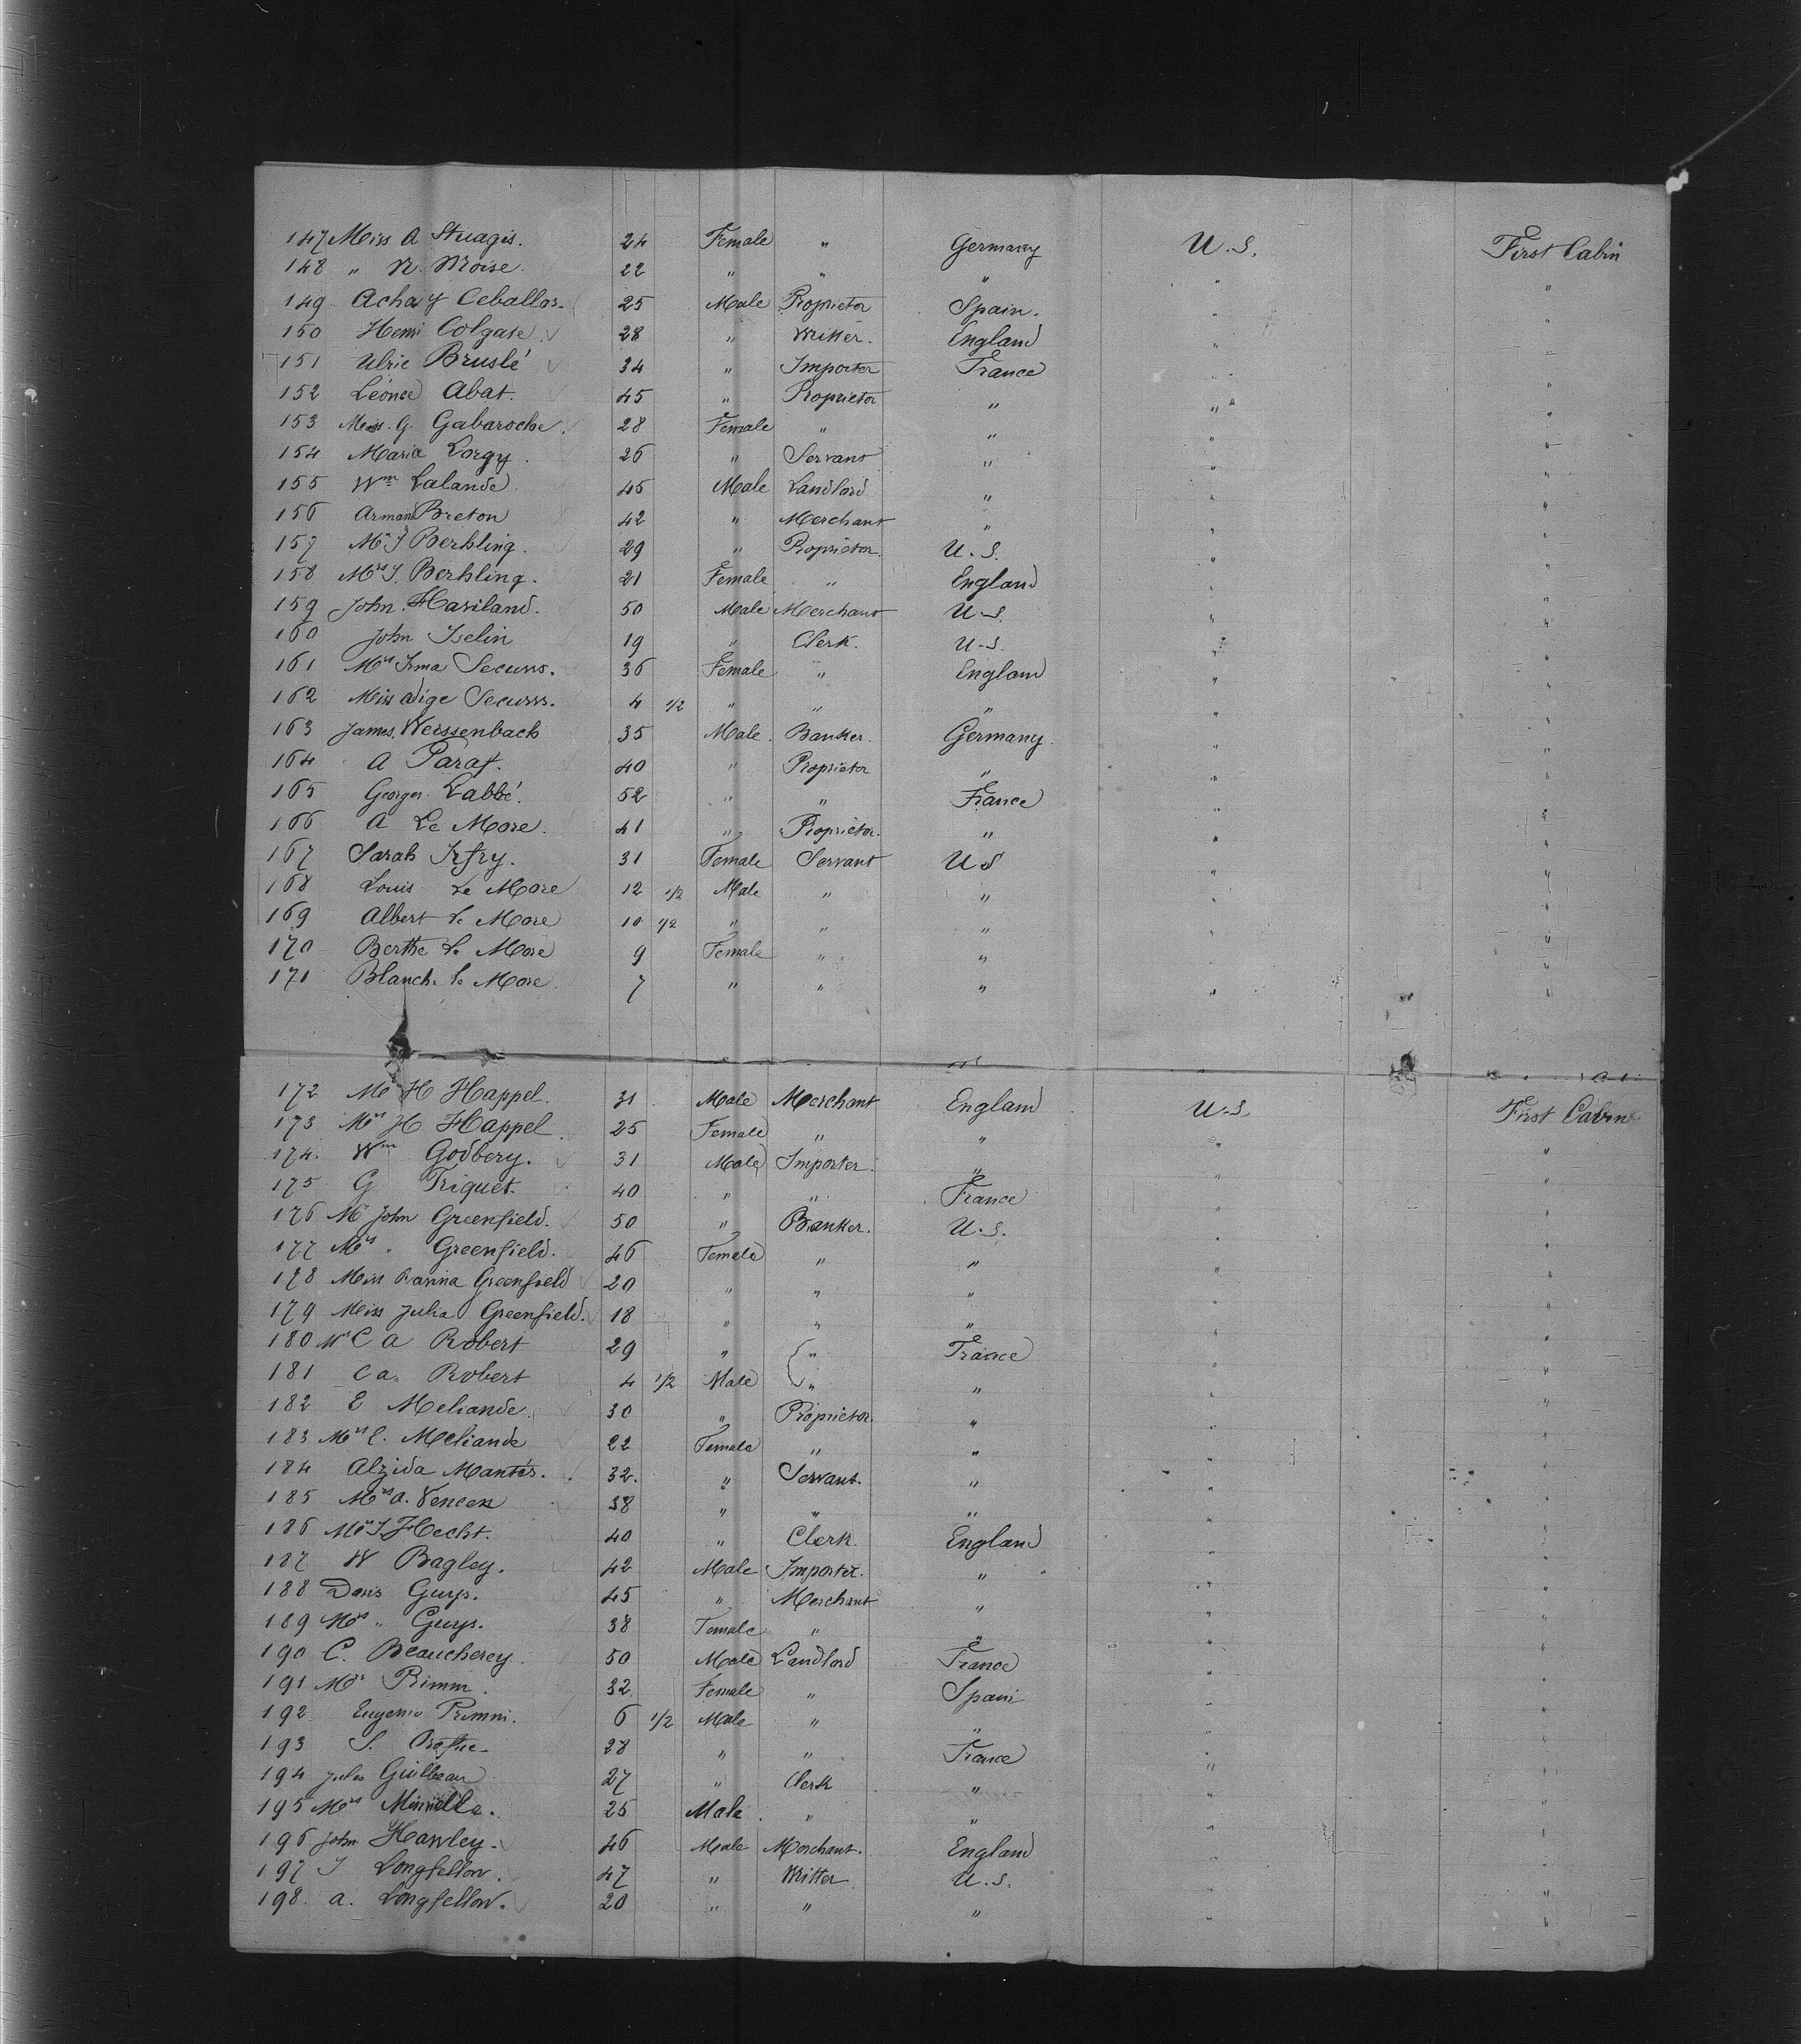 147 Miss A Stuagis. 24 Female " Germany U.S. First Cabin
148 " N. Moise. 22 " " " " "
149 Achay Ceballos. 25 Male Proprietor Spain. " "
150 Henri Colgate 28 " Writter. England " "
151 Ulric Bruslé 34 " Importer France "
152 Léonce Abat. 45 " Proprietor " " "
153 Miss. G. Gabaroche. 28 Female " " " "
154 Maria Lorgy. 26 " Servant " " "
155 Wm Lalande 45 Male Landlord " " "
156 Armand Breton 42 " Merchant " " "
157 Mr J Berhling. 29 " Proprietor. U.S. " "
158 Mrs J. Berhling. 21 Female " England " "
159 John. Hariland. 50 Male Merchant U.S. " "
160 John Iselin 19 " Clerk. U.S. " "
161 Mrs Irma Securrs. 36 Female " England " "
162 Miss Securrs. 4 1/2 " " " " "
163 James. Weissenbach 35 Male. Banker. Germany. " "
164 A Paraf. 40 " Proprietor " " "
165 Georges Labbé. 52 " " France " "
166 A Le More. 41 " Proprietor. " " "
167 Sarah 31 Female Servant U S " "
168 Louis Le More 12 1/2 Male " " " "
169 Albert Le More 10 1/2 " " " " "
170 Berthe Le More 9 Female " " " "
171 Blanche Le More 7 " " " " "
172 Mr H Happel. 31 Male Merchant England U.S. First Cabin
173 Mrs H Happel. 25 Female " " " "
174. Wm Godbery. 31 Male Importer. " " "
175 G Triquet. 40 " " France " "
176 Mr John Greenfield. 50 " Banker. U.S. " "
177 Mrs " Greenfield. 46 Female " " " "
178 Miss Greenfield 20 " " " " "
179 Miss Julia Greenfield. 18 " " " " "
180 Mrs C A Robert 29 " " France " "
181 C a. Robert 4 1/2 Male " " " "
182 E Meliande. 30 " Proprietor. " " "
183 Mrs E. Meliande 22 Female " " " "
184 Alzida Mantés. 32. " Servant. " " "
185 Mrs A. Vencen 38 " " " " "
186 Mrs J. Hecht. 40 " Clerk. England " "
187 W Bagley. 42 Male Importer. " " "
188 Denis Guys. 45 " Merchant " " "
189 Mrs " Guys. 38 Female " " " "
190 C. Beaucherey. 50 Male Landlord France " "
191 Mrs Primm. 32. Female " Spain " "
192 Eugenio Primm. 6 1/2 Male " " " "
193 S. 28 " " France " "
194 Jules Guilbeau 27 " Clerk " " "
195 Mrs 25 Male " " " "
196 John Hawley. 46 Male Merchant. England " "
197 J Longfellow. 47 " Writter U.S. " "
198. a. Longfellow. 20 " " " " "